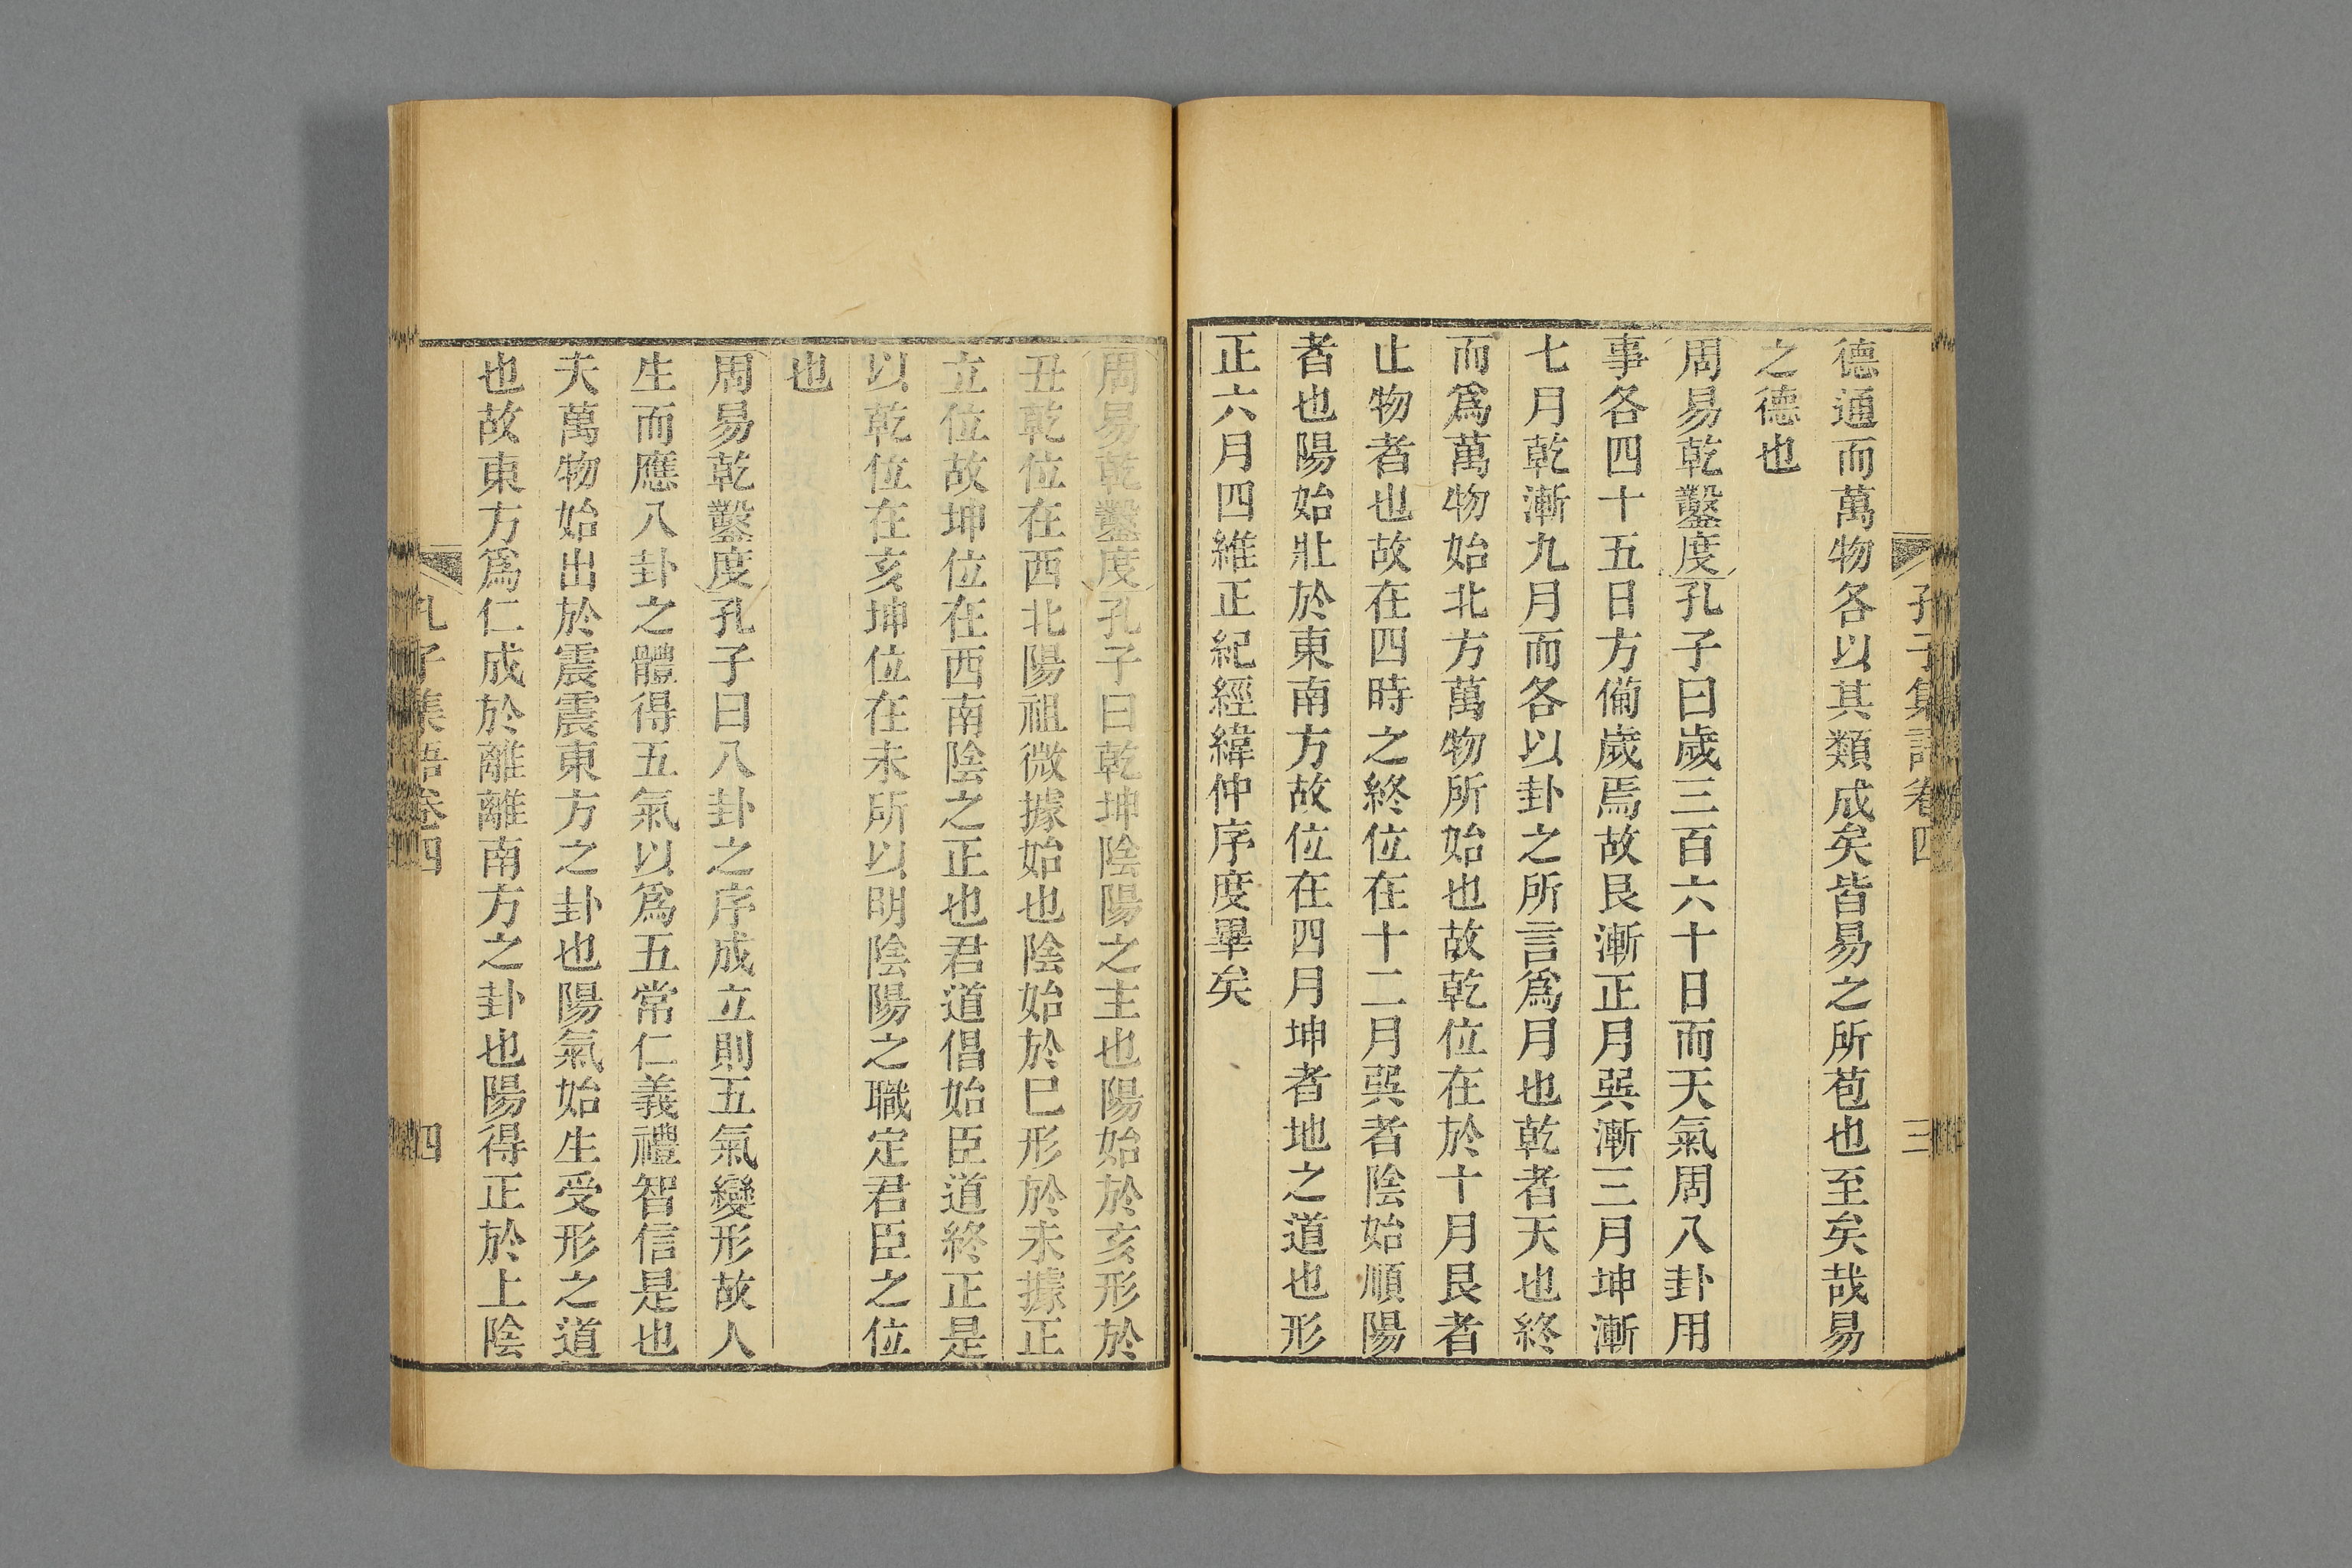 孔子集語卷四 三
德通而萬物各以其類成矣皆易之所苞也至矣哉易
之德也
周易乾鑿度孔子曰歲三百六十日而天氣周八卦用
事各四十五日方備歲焉故艮漸正月巽漸三月坤漸
七月乾漸九月而各以卦之所言爲月也乾者天也終
而爲萬物始北方萬物所始也故乾位在於十月艮者
止物者也故在四時之終位在十二月巽者陰始順陽
者也陽始壯於東南方故位在四月坤者地之道也形
正六月四維正紀經緯仲序度畢矣
周易乾鑿度孔子曰乾坤陰陽之主也陽始於亥形於
丑乾位在西北陽祖微據始也陰始於巳形於未據正
立位故坤位在西南陰之正也君道倡始臣道終正是
以乾位在亥坤位在未所以明陰陽之職定君臣之位
也
周易乾鑿度孔子曰八卦之序成立則五氣變形故人
生而應八卦之體得五氣以爲五常仁義禮智信是也
夫萬物始出於震震東方之卦也陽氣始生受形之道
也故東方爲仁成於離離南方之卦也陽得正於上陰
孔子集語卷四 四